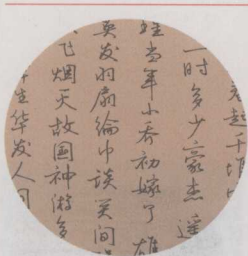 起千堆
一时多少豪杰遥
当年小乔初嫁了雄
英发羽扇纶巾谈笑间
飞烟灭故国神游多
生华发人间